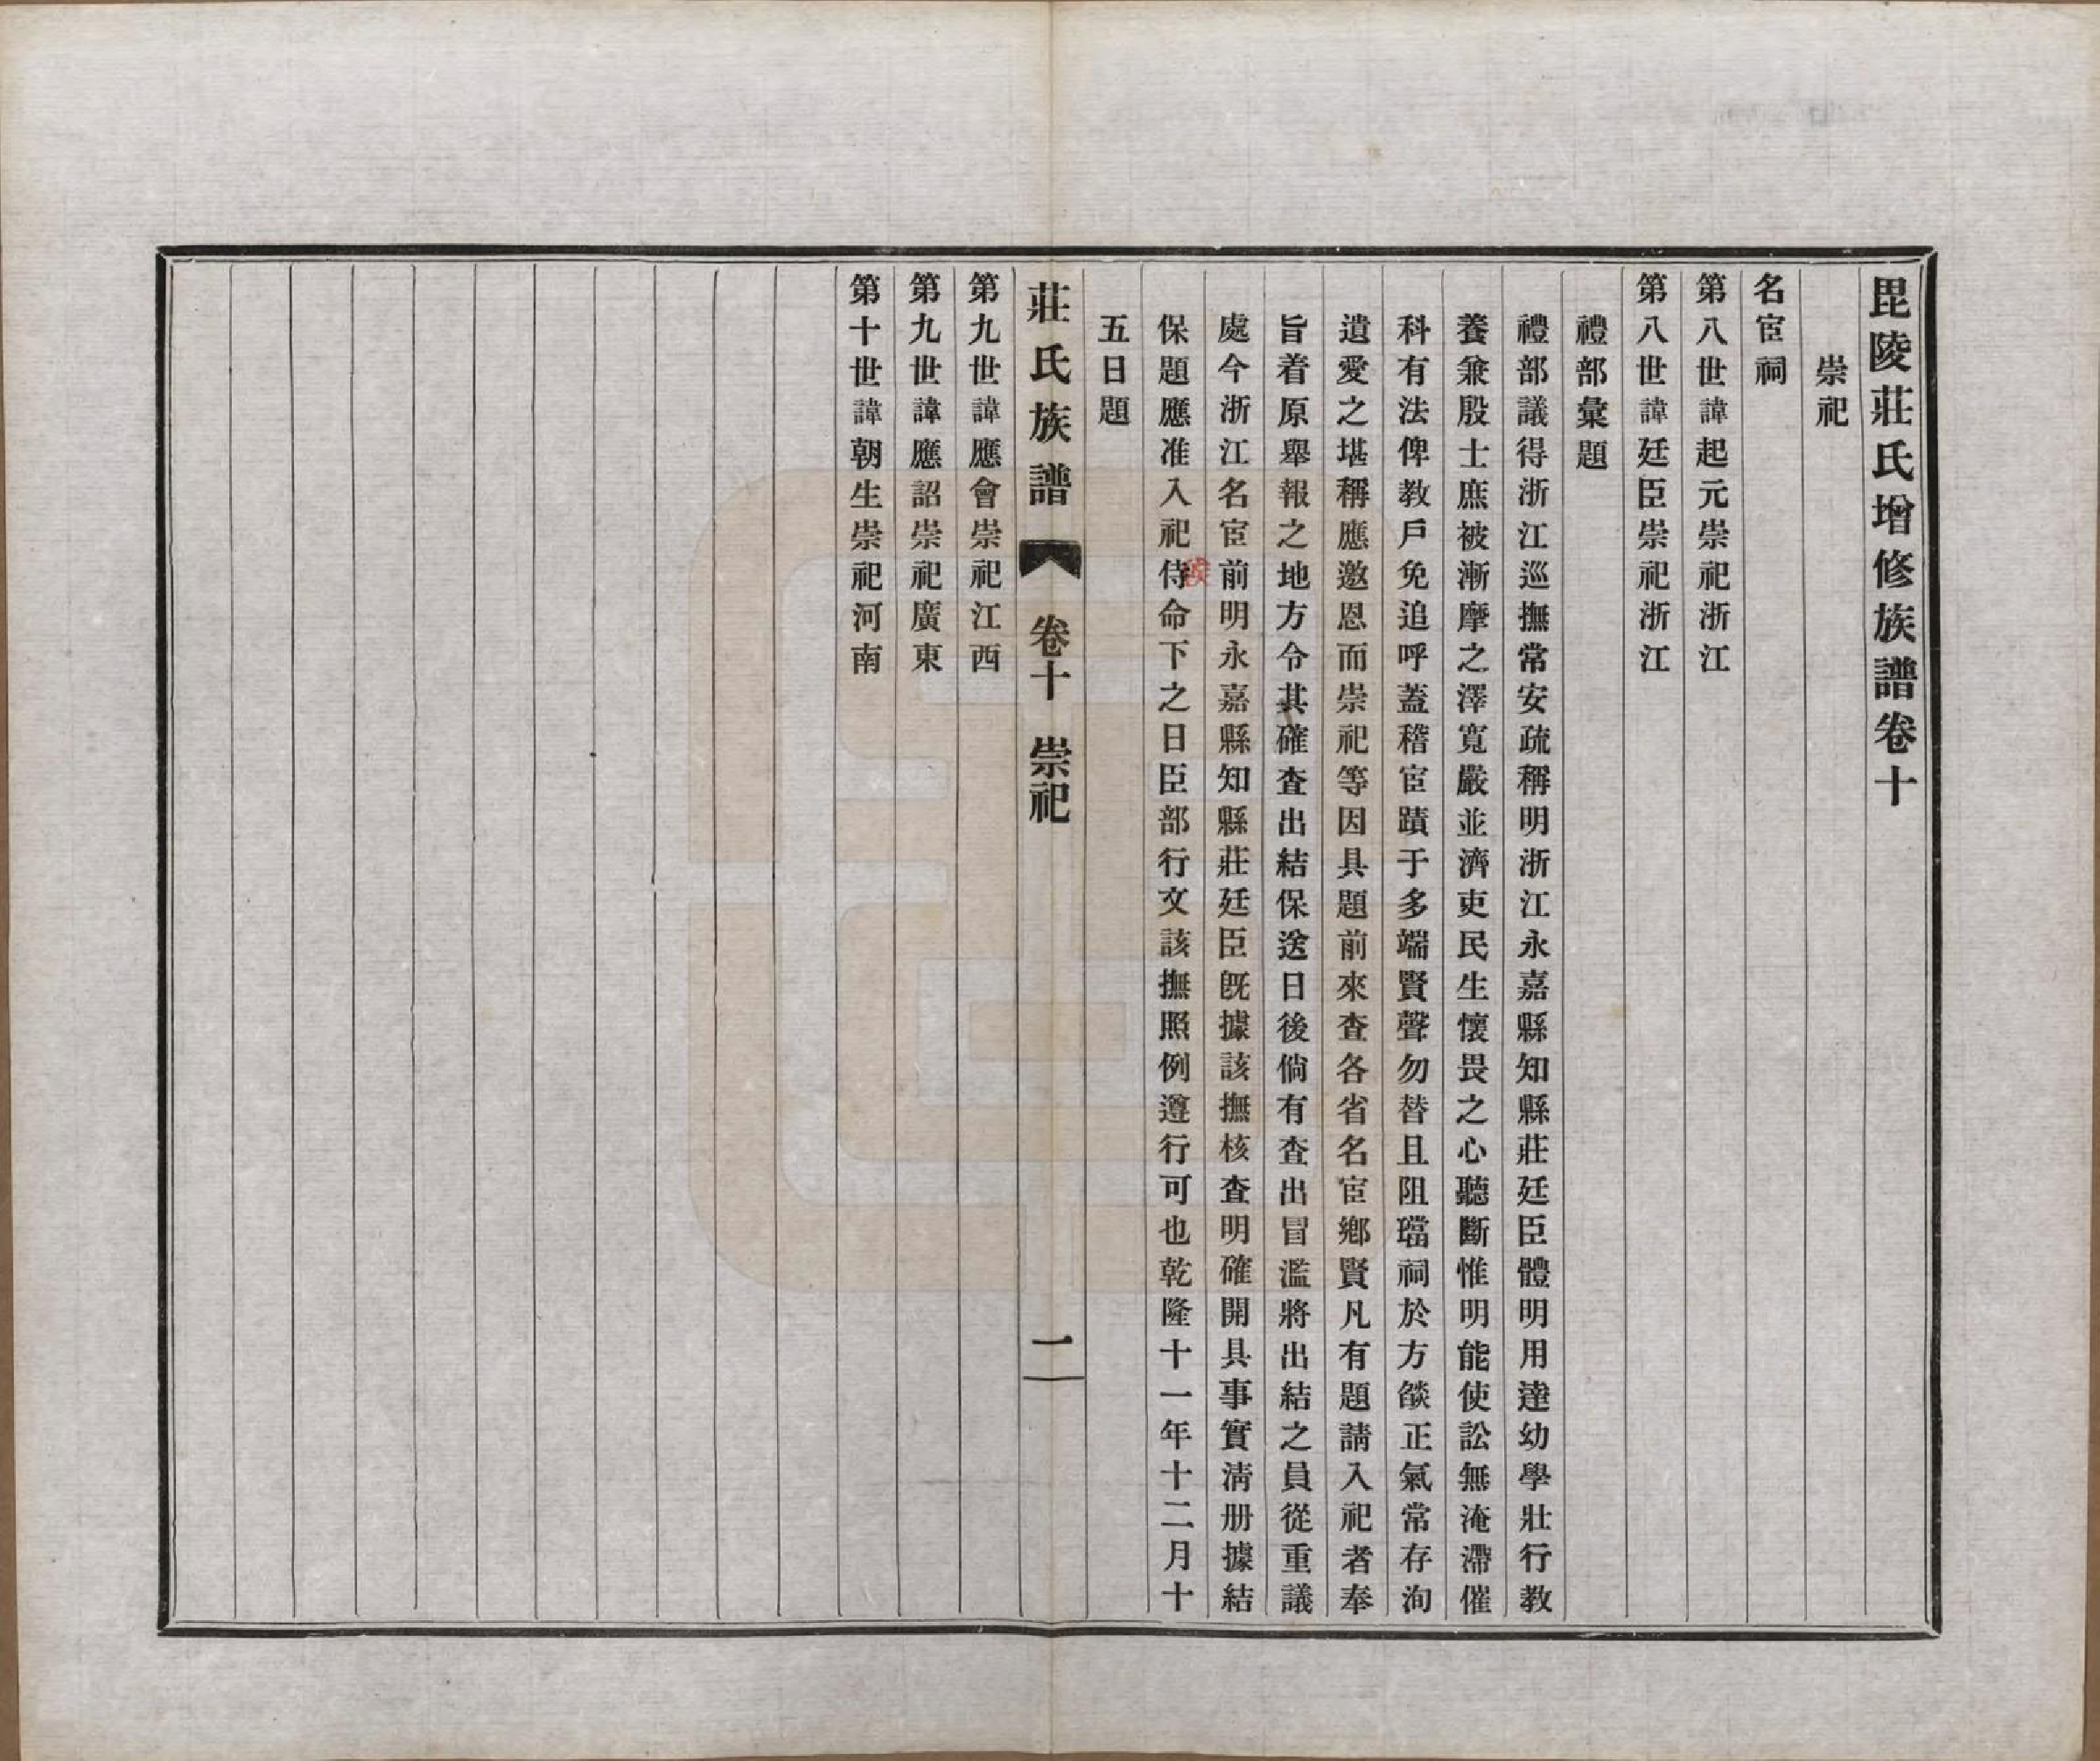 毘陵莊氏增修族譜卷十
崇祀
名宦祠
第八世諱起元崇祀浙江
第八世諱廷臣崇祀浙江
禮部彙題
禮部議得浙江巡撫常安疏稱明浙江永嘉縣知縣莊廷臣體明用達幼學壯行教
養兼殷士庶被漸摩之澤寬嚴並濟吏民生懷畏之心聽斷惟明能使訟無淹滯催
科有法俾教戶免追呼蓋稽宦蹟于多端賢聲勿替且阻璫祠於方燄正氣常存洵
遺愛之堪稱應邀恩而崇祀等因具題前來查各省名宦鄉賢凡有題請入祀者奉
旨着原舉報之地方令其確查出結保送日後倘有查出冒濫將出結之員從重議
處今浙江名宦前明永嘉縣知縣莊廷臣既據該撫核查明確開具事實清册據結
保題應准入祀侍命下之日臣部行文該撫照例遵行可也乾隆十一年十二月十
五日題
莊氏族譜 卷十 崇祀 一
第九世諱應會崇祀江西
第九世諱應詔崇祀廣東
第十世諱朝生崇祀河南